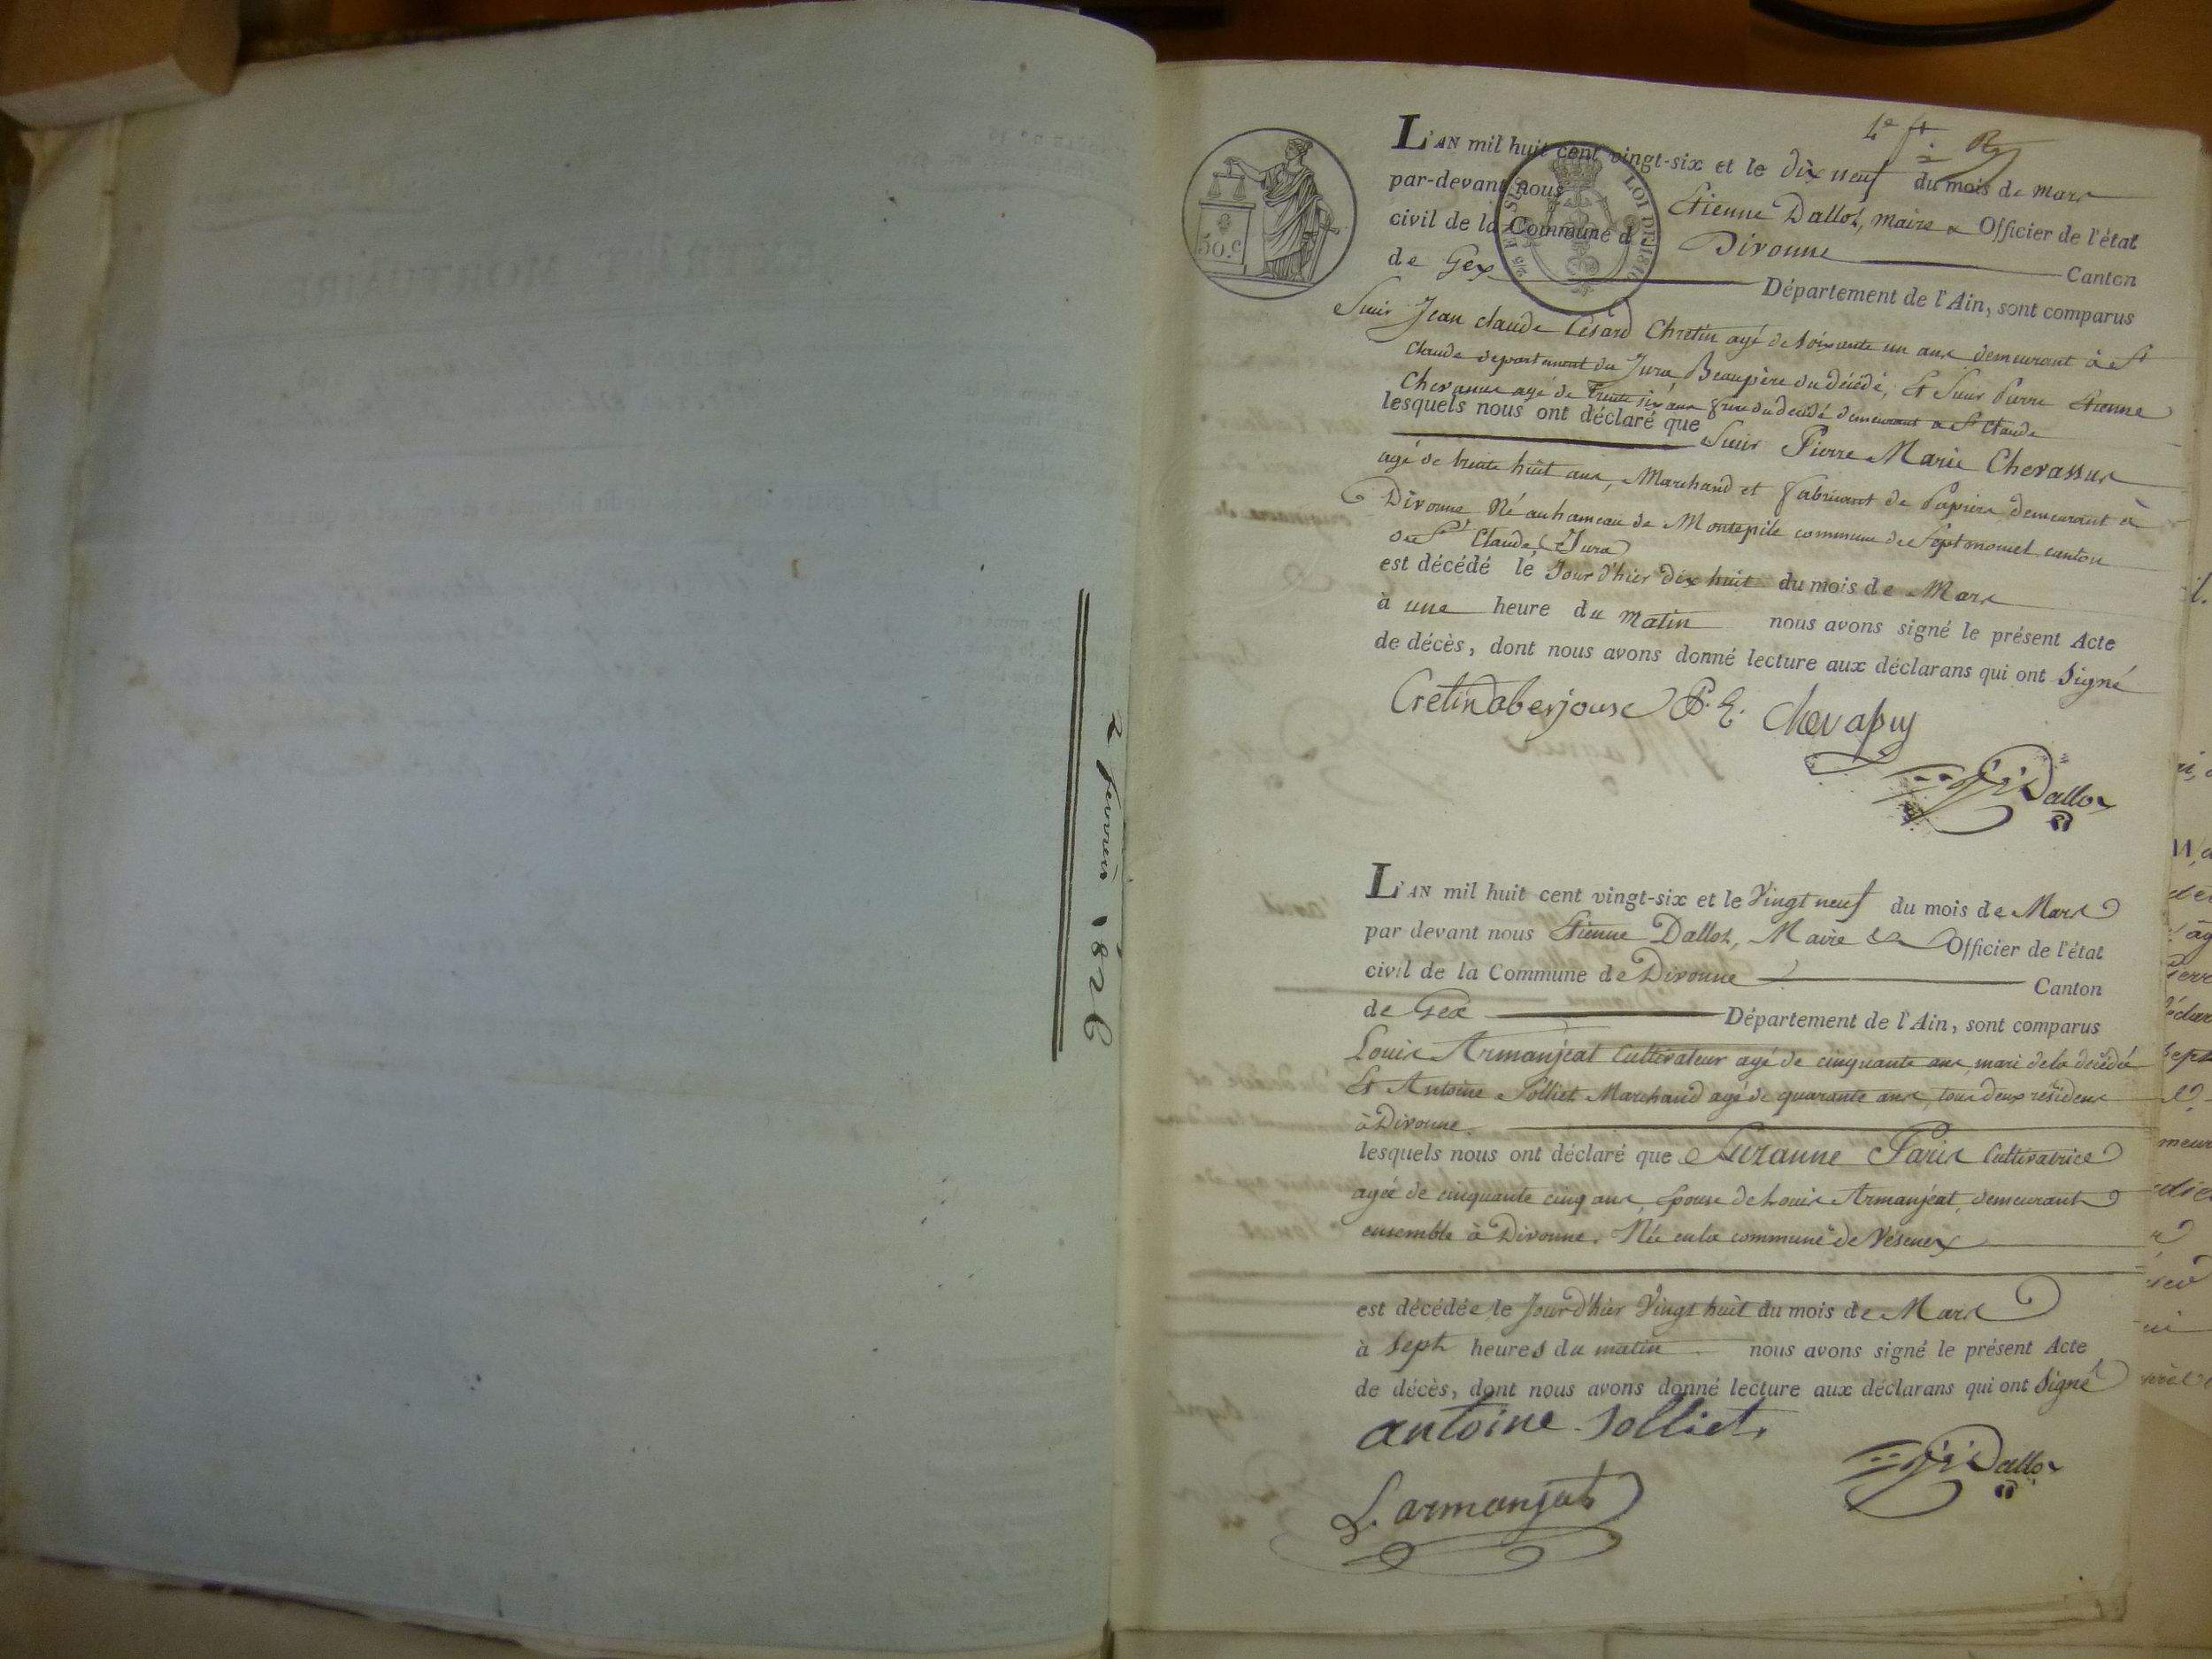 2 fevrier 1826
4e ft
30.c
LOI DE 1816
L'AN mil huit cent vingt-six et le dix neuf du mois de mars
par-devant nous Etienne Dalloz, maire & Officier de l'état
civil de la Commune d Divonne Canton
de Gex Département de l'Ain, sont comparus
Sieur Jean claude Césard Chretin agé de soixante un ans demeurant à St
Claude departement du Jura Beaupère du décédé, Et Sieur Pierre Etienne
Chevassus agé de trente six ans frere du decédé demeurant a St Claude
lesquels nous ont déclaré que Sieur Pierre Marie Chevassus
agé de trente huit ans, Marchand et fabricant de Papiers demeurant à
Divonne Né au hameau de Montepile commune de Septmoncel canton
de St Claude (Jura)
est décédé le Jour d'hier dix huit du mois de Mars
à une heure du matin nous avons signé le présent Acte
de décès, dont nous avons donné lecture aux déclarans qui ont signé
Cretin P. E. Chevassus
Dalloz
L'AN mil huit cent vingt-six et le Vingt neuf du mois de Mars
par devant nous Etienne Dalloz, Maire & Officier de l'état
civil de la Commune de Divonne Canton
de Gex Département de l'Ain, sont comparus
Louis Armanjeat Cultivateur agé de cinquante ans, mari de la decédée
Et Antoine Solliet Marchand agé de quarante ans, tous deux résidens
à Divonne.
lesquels nous ont déclaré que Suzanne Paris Cultivatrice
agée de cinquante cinq ans, Epouse de Louis Armanjeat, demeurant
ensemble à Divonne. Née en la commune de Vésenex
est décédée le Jour d'hier Vingt huit du mois de Mars
à sept heures du matin nous avons signé le présent Acte
de décès, dont nous avons donné lecture aux déclarans qui ont Signé
antoine Solliet
Dalloz
L. armanjat